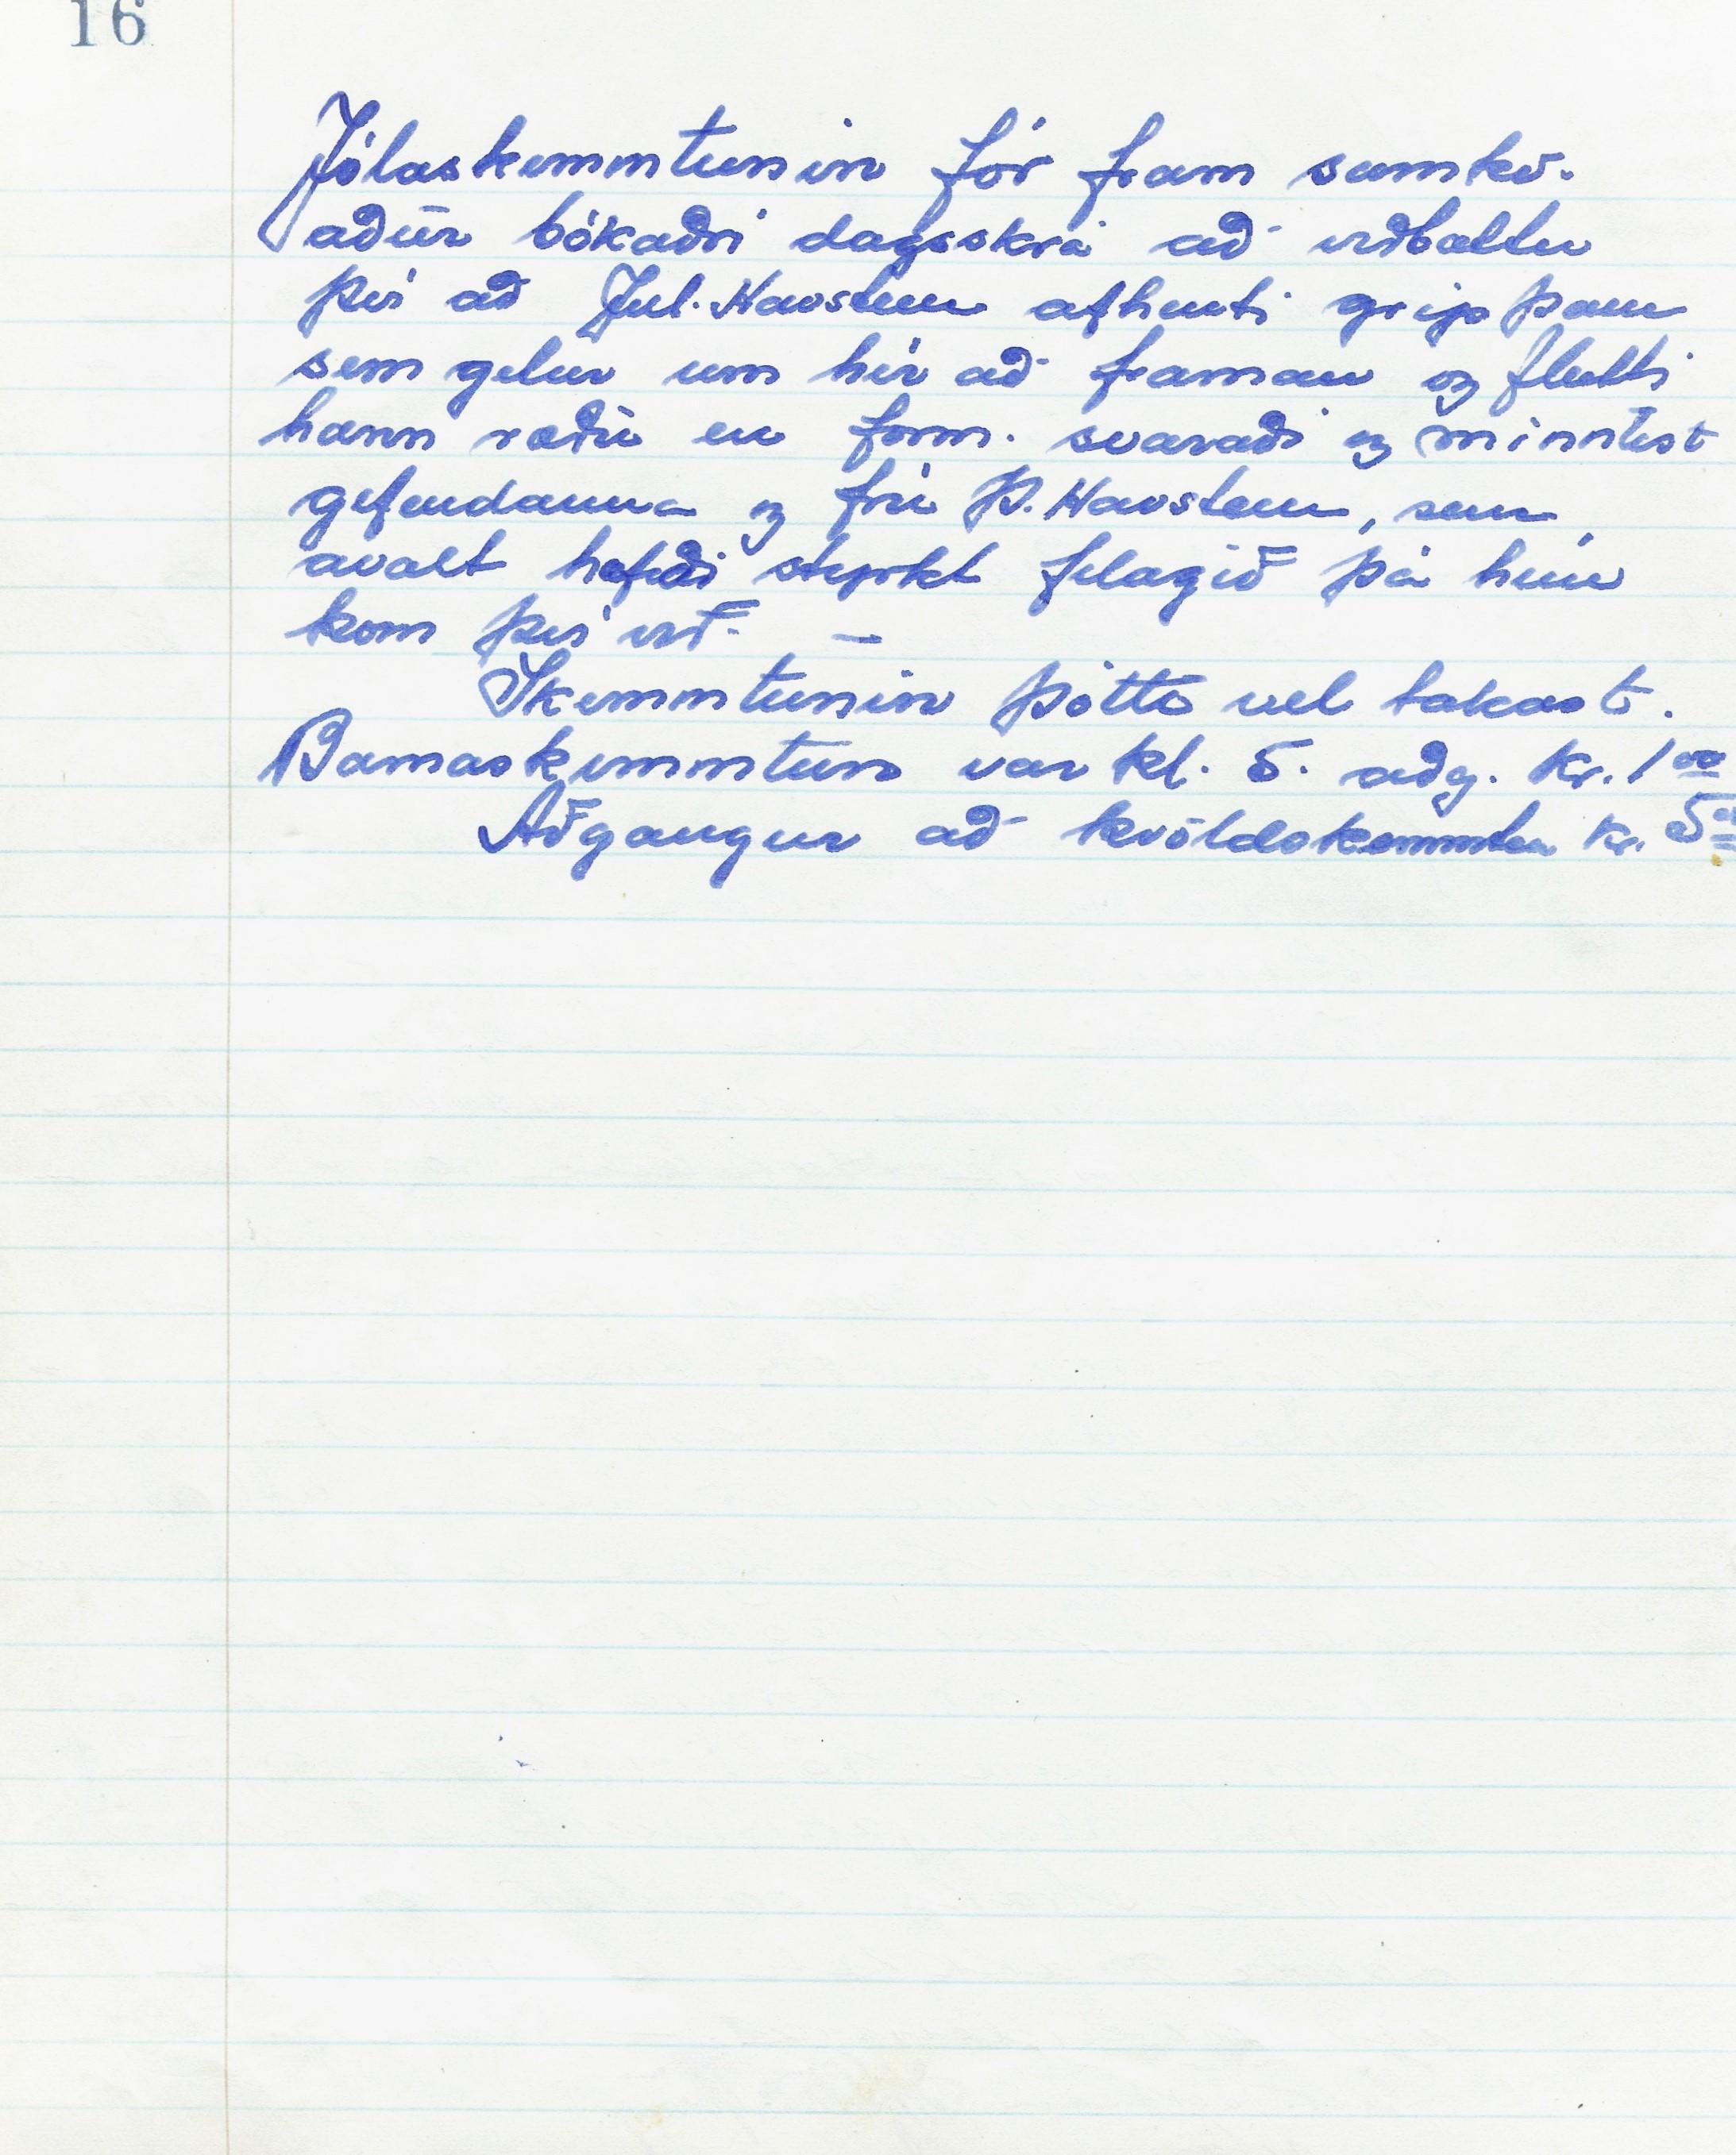 16
Jólaskemmtunin fór fram samkv.
aður bókaðri dagsskrá að viðbættu
því að Jul. Havsteen afhenti grip þann
sem getur um hér að framan og flutti
hann ræðu en form. svaraði og minntist
gefendanna og frú Þ. Havsteen, sem
ávalt hefði styrkt félagið þá hún
kom því við. –
Skemmtunin þótti vel takast.
Barnaskemmtun var kl. 5. aðg. kr. 1 00
Aðgangur að kvöldskemmtun kr. 5 00